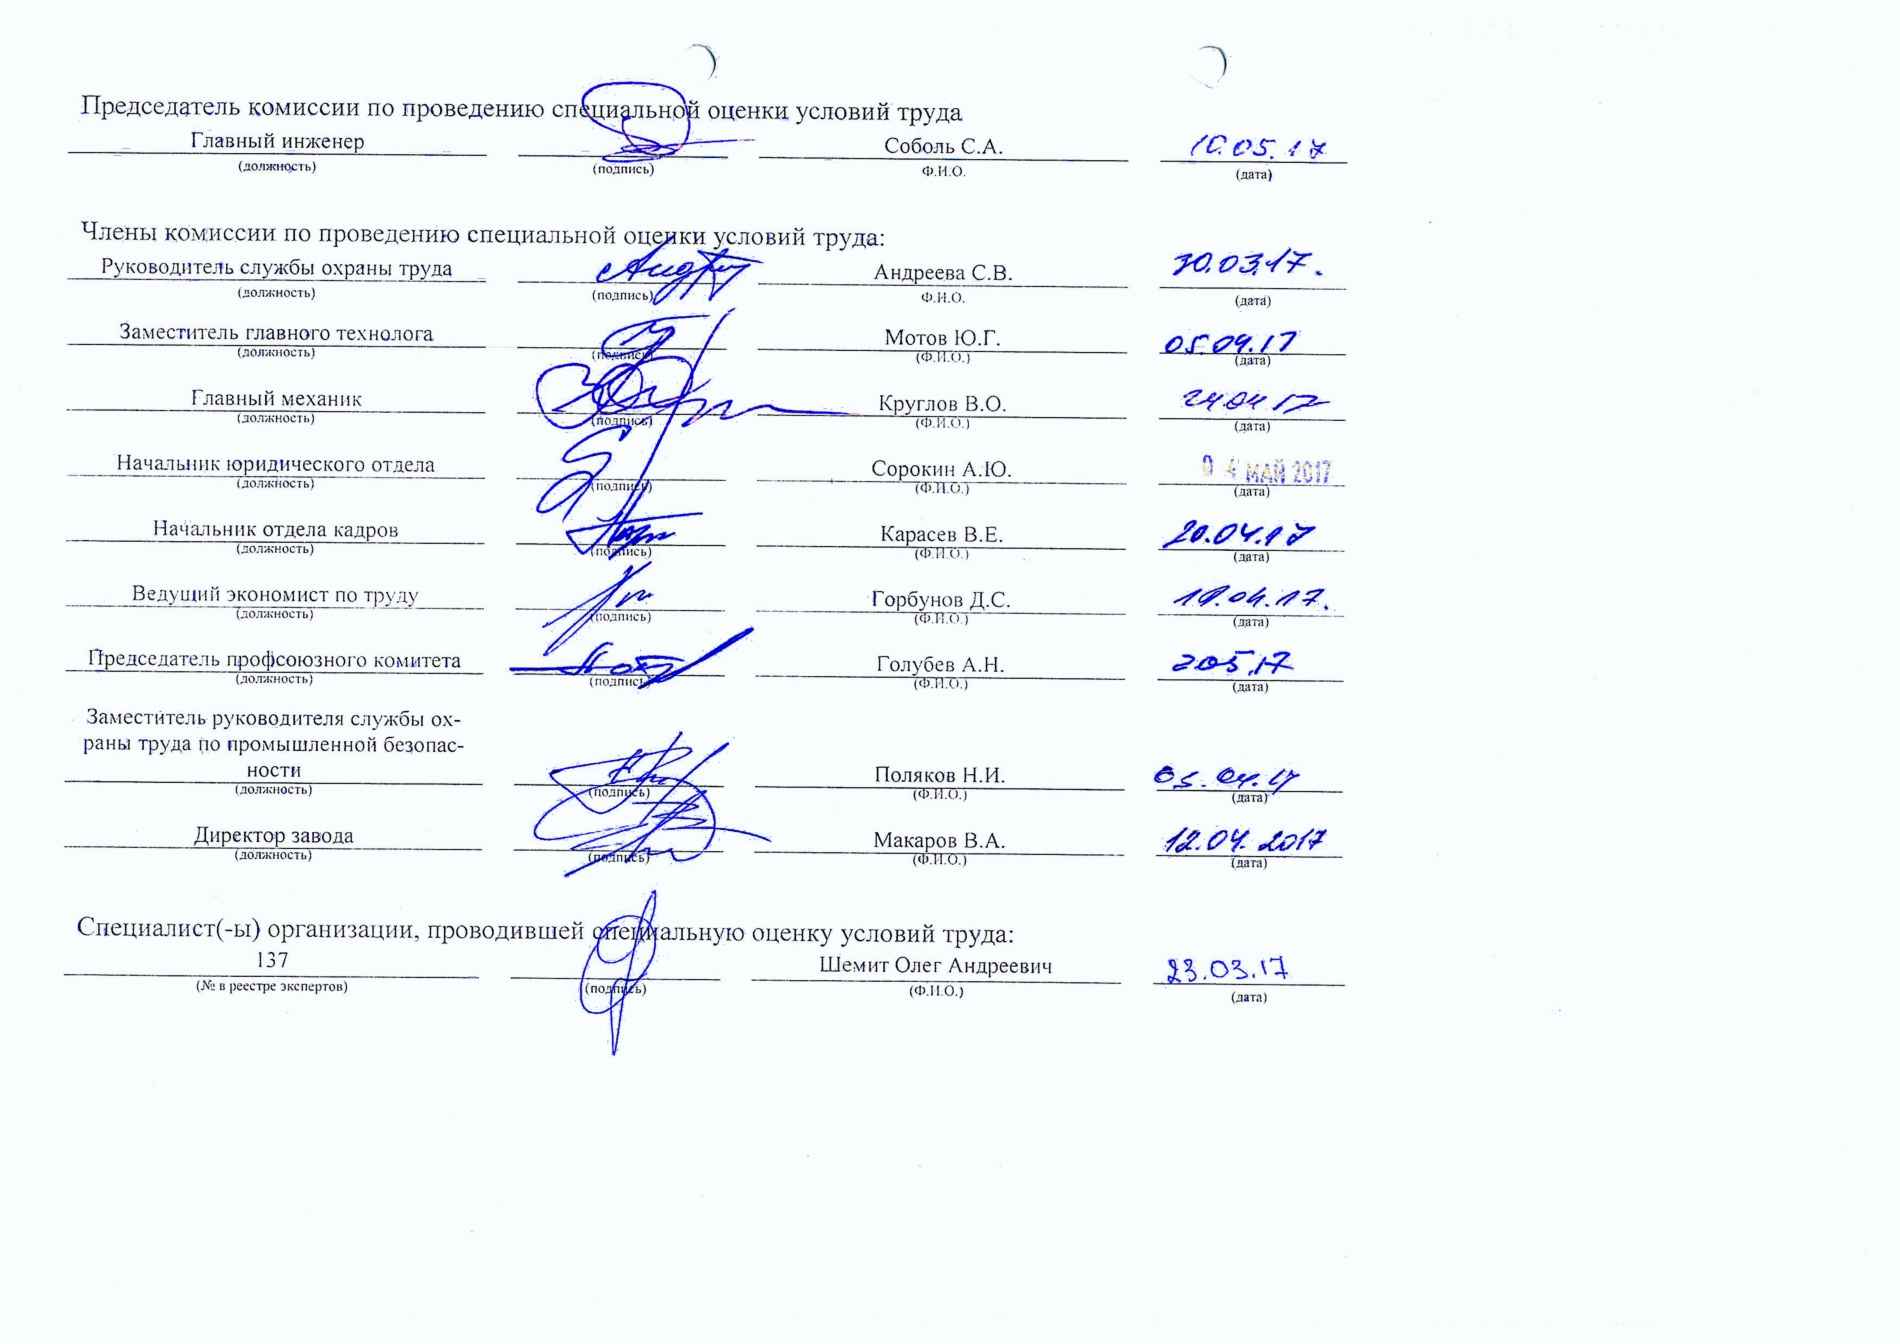 Председатель комиссии по проведению специальной оценки условий труда
Главный инженер Соболь С.А. 10.05.17
(должность) (подпись) Ф.И.О. (дата)
Члены комиссии по проведению специальной оценки условий труда:
Руководитель службы охраны труда Андреева С.В. 30.03.17.
(должность) (подпись) Ф.И.О. (дата)
Заместитель главного технолога Мотов Ю.Г. 05.04.17
(должность) (подпись) (Ф.И.О.) (дата)
Главный механик Круглов В.О. 24.04.17
(должность) (подпись) (Ф.И.О.) (дата)
Начальник юридического отдела Сорокин А.Ю. 04 МАЙ 2017
(должность) (подпись) (Ф.И.О.) (дата)
Начальник отдела кадров Карасев В.Е. 20.04.17
(должность) (подпись) (Ф.И.О.) (дата)
Ведущий экономист по труду Горбунов Д.С. 19.04.17.
(должность) (подпись) (Ф.И.О.) (дата)
Председатель профсоюзного комитета Голубев А.Н. 205.17
(должность) (подпись) (Ф.И.О.) (дата)
Заместитель руководителя службы ох-
раны труда по промышленной безопас-
ности Поляков Н.И. 05.04.17
(должность) (подпись) (Ф.И.О.) (дата)
Директор завода Макаров В.А. 12.04.2017
(должность) (подпись) (Ф.И.О.) (дата)
Специалист(-ы) организации, проводившей специальную оценку условий труда:
137 Шемит Олег Андреевич 23.03.17
(№ в реестре экспертов) (подпись) (Ф.И.О.) (дата)